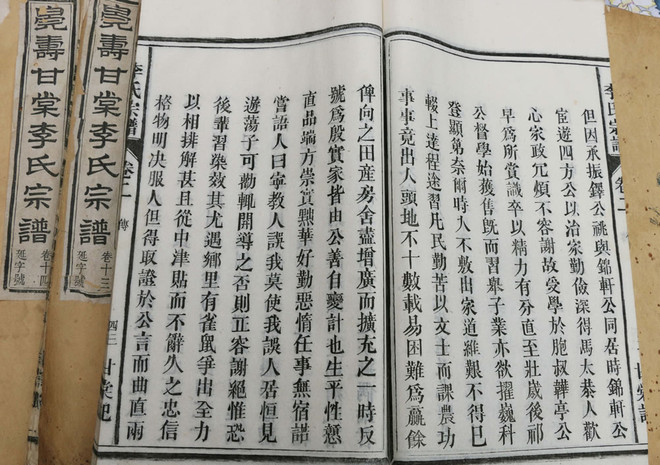 李氏宗譜
卷二
甘棠記
但因承振鐸公祧與錦軒公同居時錦軒公
宦遊四方公以治家勤儉深得馬太恭人歡
心家政冗煩不容謝故受學於胞叔韡亭公
早為所賞識卒以精力有分直至壯歲後祁
公督學始獲售既而習舉子業亦欲擢巍科
登顯第奈爾時人不敷出家道維艱不得已
輟上達程途習凡民勤苦以文士而課農功
事事竟出人頭地不十數載易困難為贏餘
俾向之田產房舍盡增廣而擴充之一時反
號為殷實家皆由公善自變計也生平性慤
直品端方崇實黜華好勤惡惰任事無宿諾
嘗語人曰寧教人誤我莫使我誤人居恒見
遊蕩子可勸輒開導之否則正容謝絕惟恐
後輩習染效其尤遇鄉里有雀鼠爭出全力
以相排解甚且從中津貼而不辭久之忠信
格物明決服人但得取證於公言而曲直兩
李氏宗譜
卷二
傳
四三
甘棠記
甍壽甘棠李氏宗譜
卷十三
延字號
甍壽甘棠李氏宗譜
卷十四
延字號